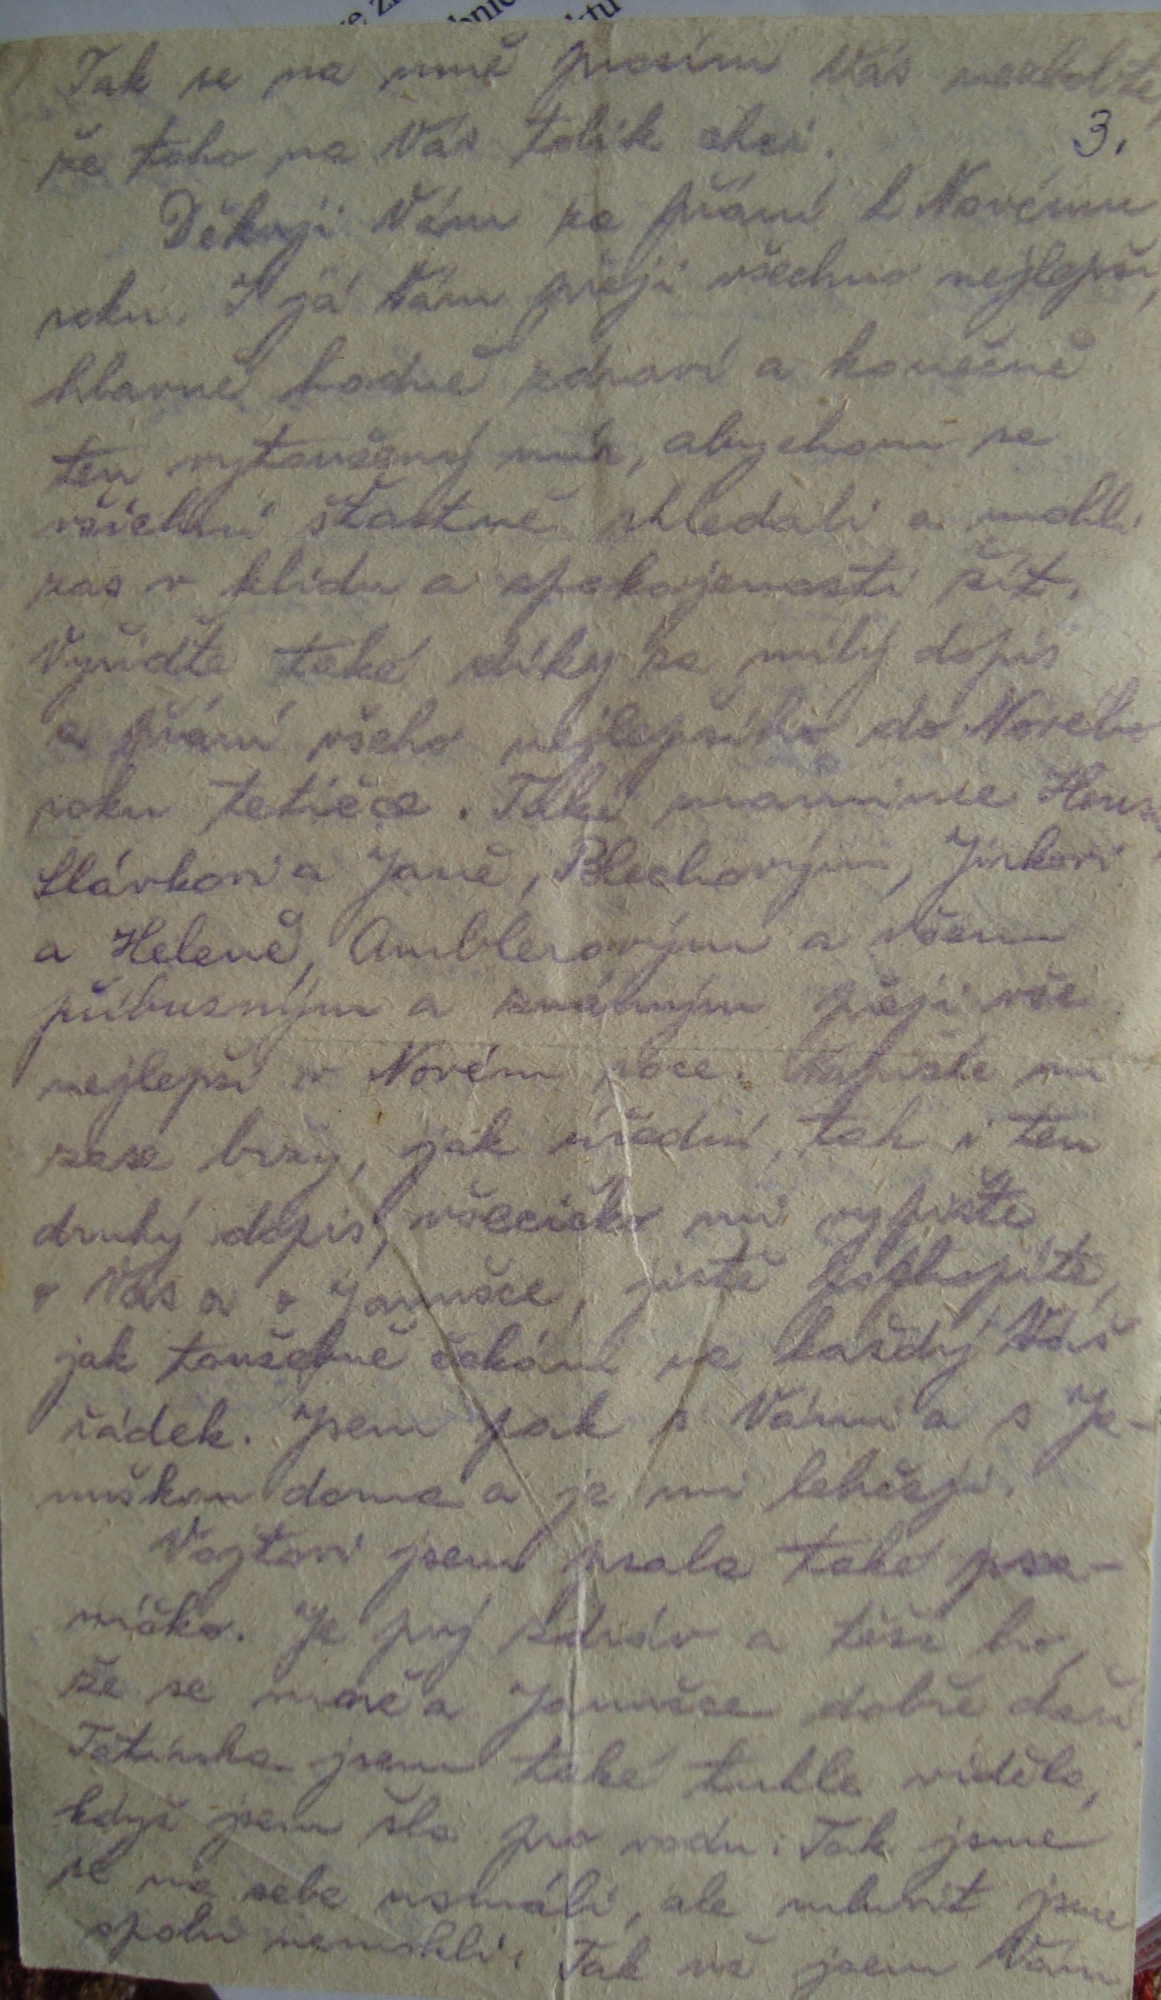 Tak se na mně prosím Vás nezlobte,
že toho na Vás tolik chci.
3.
Děkuji Vám za přání k Novému
roku. I já Vám přeji všechno nejlepší,
hlavně hodně zdraví a konečně
ten vytoužený mír, abychom se
všichni šťastně shledali a mohli
zas v klidu a spokojenosti žít.
Vyřiďte také díky za milý dopis
a přání všeho nejlepšího do Nového
roku tetičce. Také mamince
Slávkovi a Janě, Blechovým, Jirkovi
a Heleně, Amblerovým a všem
příbuzným a známým přeji vše
nejlepší v Novém roce. Napište mi
zase brzy, jak úřední, tak i ten
druhý dopis, všecičko mi vypište
o Vás a o Janušce, jistě pochopíte,
jak toužebně čekám na každý Váš
řádek. Jsem pak s Vámi a s Ja-
nuškou doma a je mi lehčeji.
Vojtovi jsem psala také psa-
níčko. Je prý zdráv a těší ho,
že se mně a Janušce dobře daří.
Tatínka jsem také tuhle viděla,
když jsem šla pro vodu. Tak jsme
se na sebe usmáli, ale mluvit jsme
spolu nemohli. Tak už jsem Vám